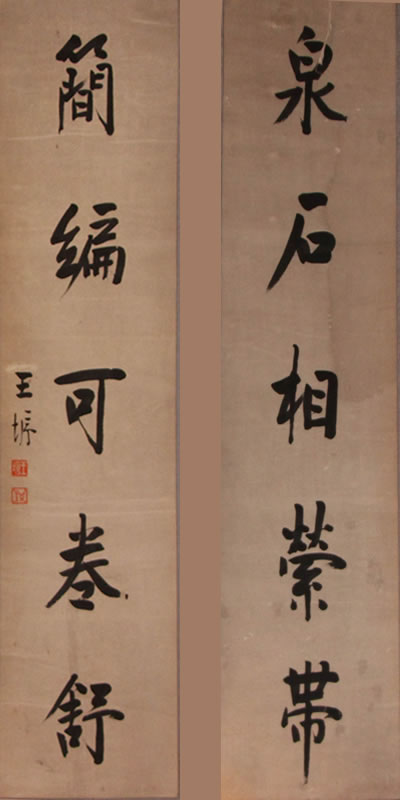 泉石相縈帶
簡編可卷舒
王垿